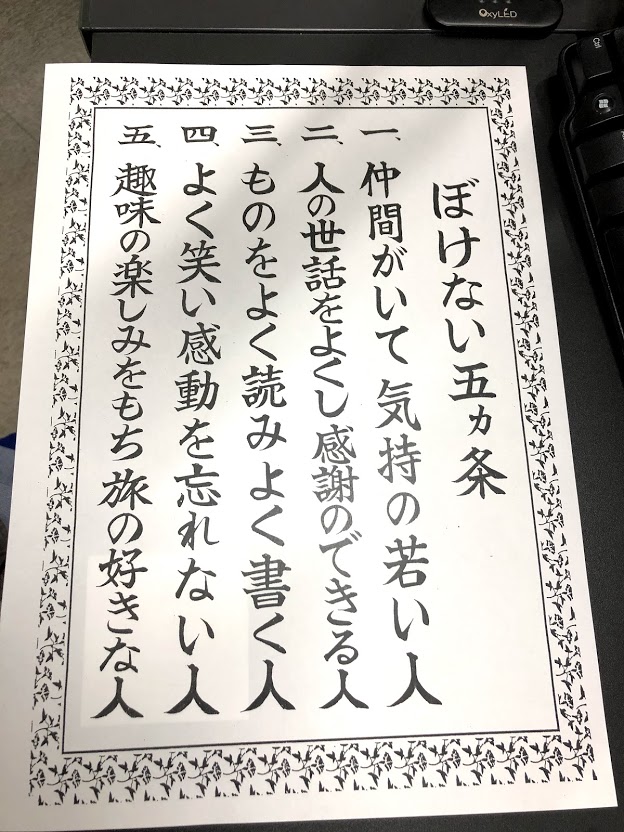 OxyLED
Ctrl
ぼけない五カ条
一、仲間がいて 気持の若い人
二、人の世話をよくし感謝のできる人
三、ものをよく読みよく書く人
四、よく笑い感動を忘れない人
五、趣味の楽しみをもち 旅の好きな人